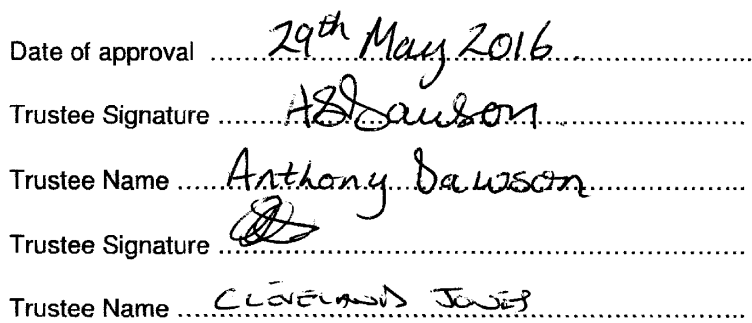 Date of approval 29th May 2016.
Trustee Signature ASDawson
Trustee Name Anthony Dawson
Trustee Signature
Trustee Name CLEVELAND JONES